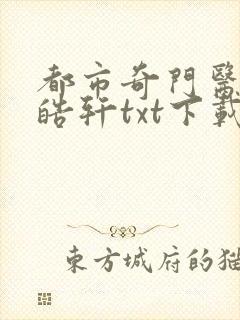 都市奇門醫
皓轩txt下載
東方城府的猫